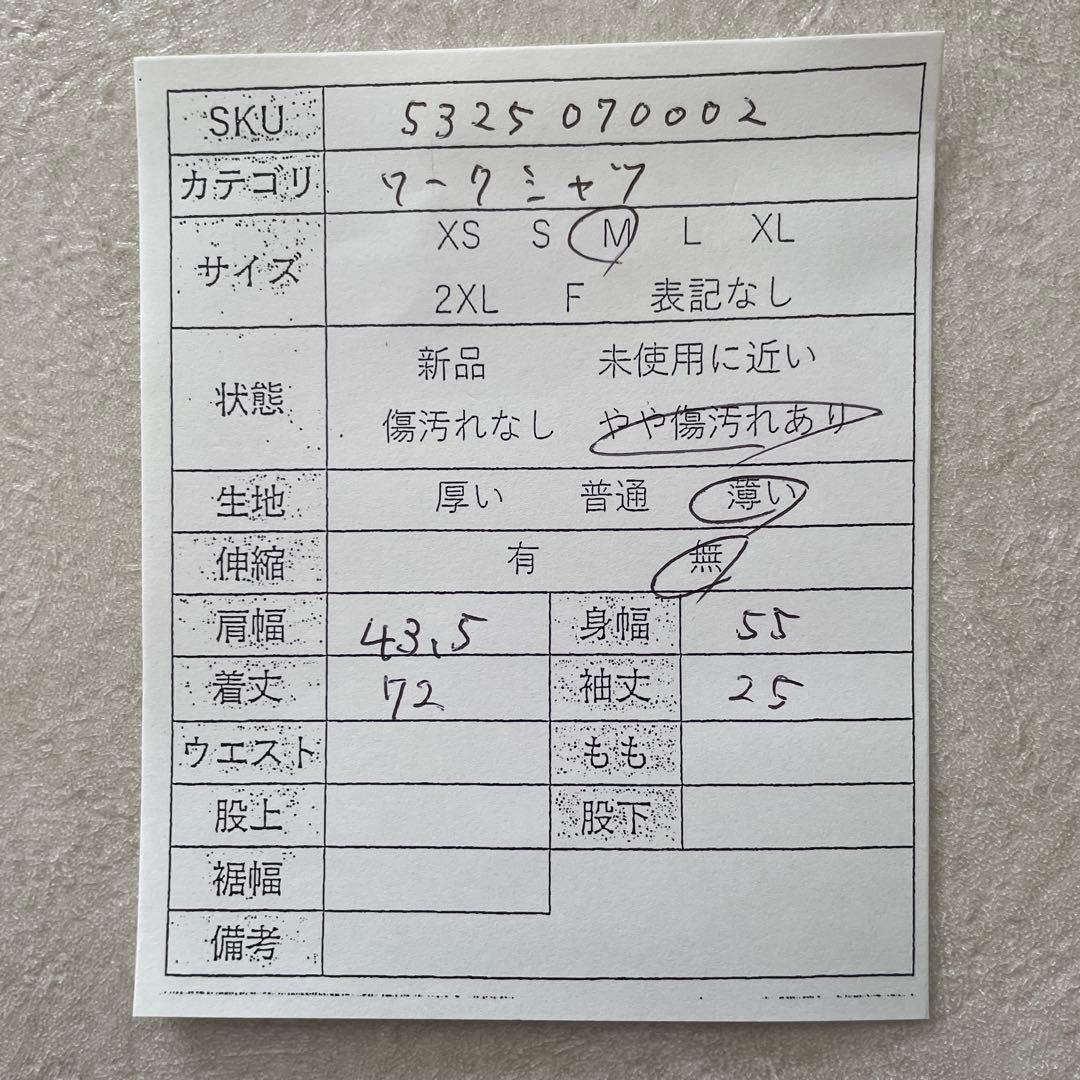 SKU 5325070002
カテゴリ ワークシャツ
サイズ XS S M L XL
2XL F 表記なし
状態 新品 未使用に近い
傷汚れなし やや傷汚れあり
生地 厚い 普通 薄い
伸縮 有 無
肩幅 43.5 身幅 55
着丈 72 袖丈 25
ウエスト もも
股上 股下
裾幅
備考